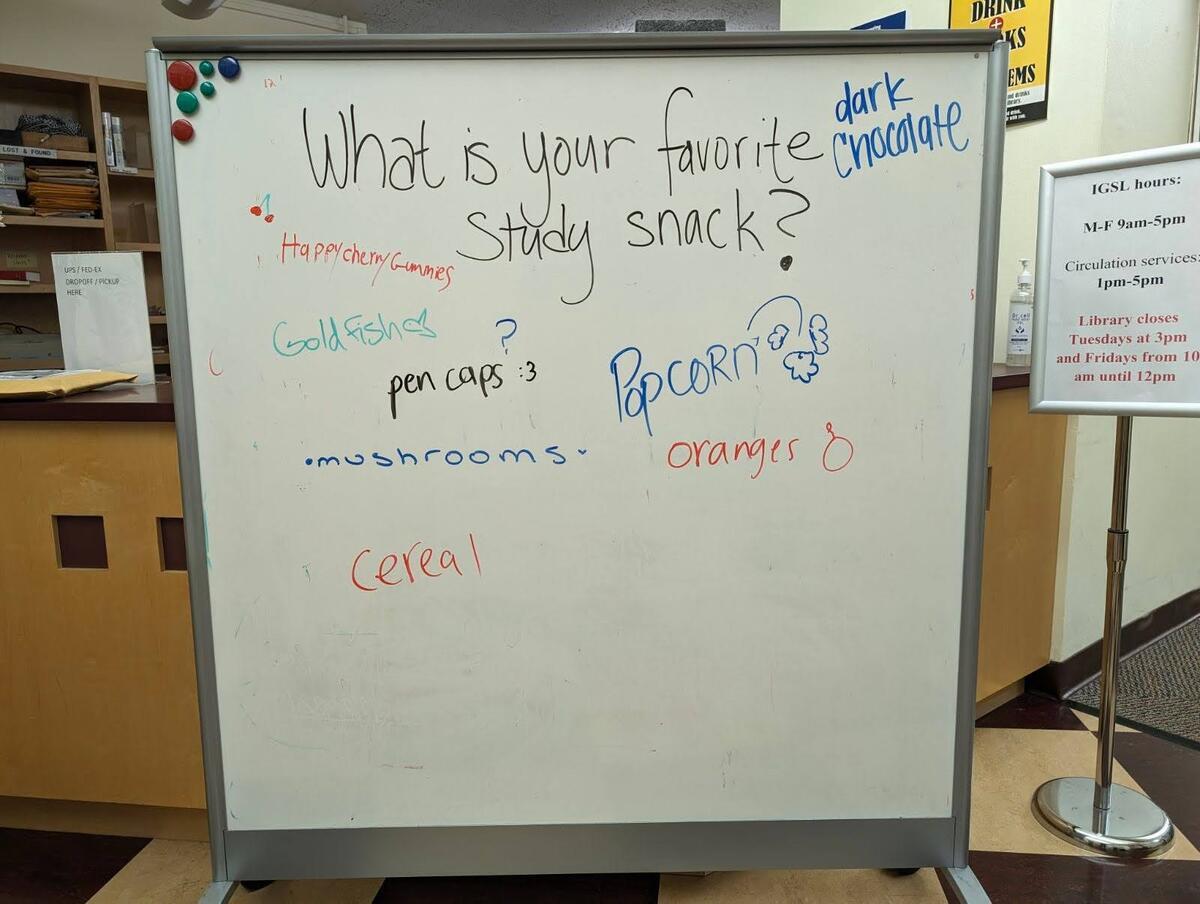 DRINK
KS
EMS
LOST & FOUND
UPS / FED-EX
DROPOFF / PICKUP
HERE
What is your favorite
study snack?
dark
chocolate
Happy cherry Gummies
Goldfish
?
pen caps :3
Popcorn
•mushrooms•
oranges
cereal
IGSL hours:
M-F 9am-5pm
Circulation services:
1pm-5pm
Library closes
Tuesdays at 3pm
and Fridays from 10
am until 12pm